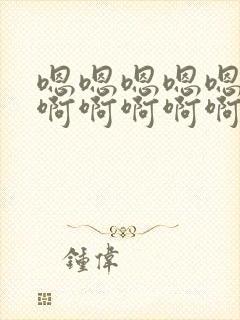 嗯嗯嗯嗯嗯
啊啊啊啊啊
鍾偉